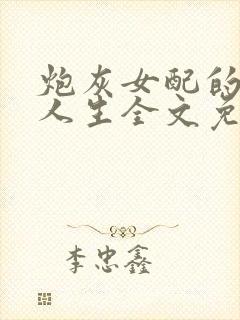 炮灰女配的
人生全文免
李忠鑫